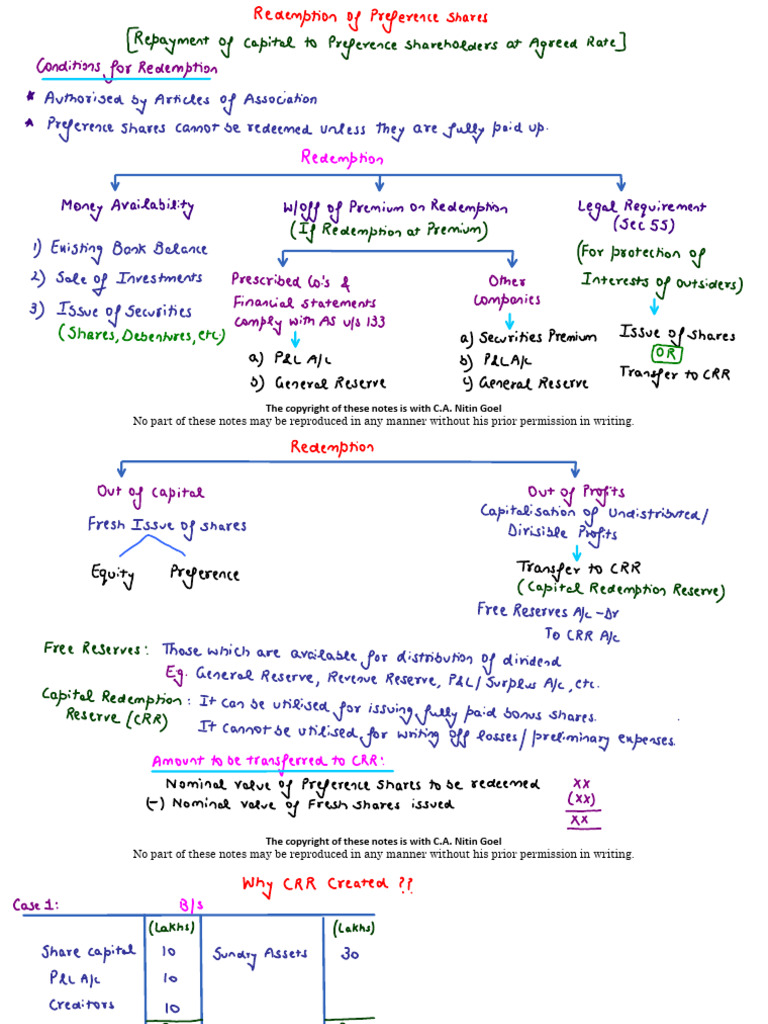 Redemption of Preference Shares
[Repayment of Capital to Preference Shareholders at Agreed Rate]
Conditions for Redemption
* Authorised by Articles of Association
* Preference Shares cannot be redeemed unless they are fully paid up.
Redemption
Money Availability
1) Existing Bank Balance
2) Sale of Investments
3) Issue of Securities
(Shares, Debentures, etc.)
W/off of Premium on Redemption
(If Redemption at Premium)
Prescribed Co's &
Financial Statements
Comply with AS u/s 133
a) P&L A/c
b) General Reserve
Other
Companies
a) Securities Premium
b) P&L A/c
c) General Reserve
Legal Requirement
(Sec 55)
(For protection of
Interests of outsiders)
Issue of Shares
OR
Transfer to CRR
The copyright of these notes is with C.A. Nitin Goel
No part of these notes may be reproduced in any manner without his prior permission in writing.
Redemption
Out of Capital
Fresh Issue of Shares
Equity Preference
Out of Profits
Capitalisation of Undistributed/
Divisible Profits
Transfer to CRR
(Capital Redemption Reserve)
Free Reserves A/c -Dr
To CRR A/c
Free Reserves: Those which are available for distribution of dividend
Eg. General Reserve, Revenue Reserve, P&L/Surplus A/c, etc.
Capital Redemption : It can be utilised for issuing fully paid bonus shares.
Reserve (CRR) It cannot be utilised for writing off losses/preliminary expenses.
Amount to be transferred to CRR:
Nominal value of Preference Shares to be redeemed xx
(-) Nominal value of Fresh shares issued (xx)
xx
The copyright of these notes is with C.A. Nitin Goel
No part of these notes may be reproduced in any manner without his prior permission in writing.
Why CRR Created ??
Case 1: B/s
(Lakhs) (Lakhs)
Share Capital 10 Sundry Assets 30
P&L A/c 10
Creditors 10